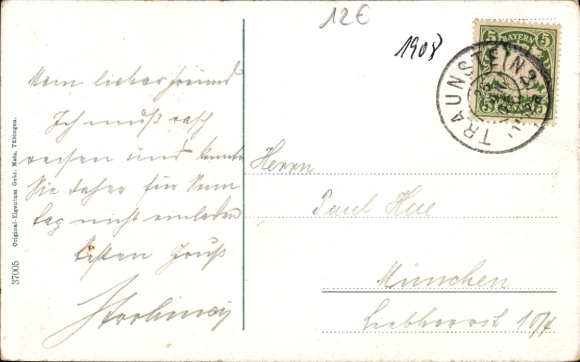 12€
1908
5 BAYERN 5
TRAUNSTEIN
Mein lieber Freund
Ich muß rasch
reisen und konnte
Sie daher für Sonn
tag nicht einladen
besten Gruß
Herrn
Paul Hue
München
Liebherrst 10/4
37005 Original-Eigentum Gebr. Metz, Tübingen.